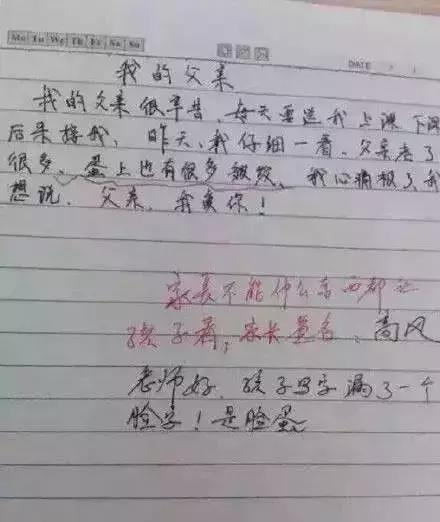 Mo Tu We Th Fr Sa Su
DATE
我的父亲
我的父亲很辛苦、每天要送我上课、下课
后来接我、昨天、我仔细一看、父亲老了
很多、蛋上也有很多皱纹、我心痛极了、我
想说、父亲、我爱你!
家长不能什么东西都让
孩子看,家长签名、高风
老师好、孩子写字漏了一个
脸字!是脸蛋